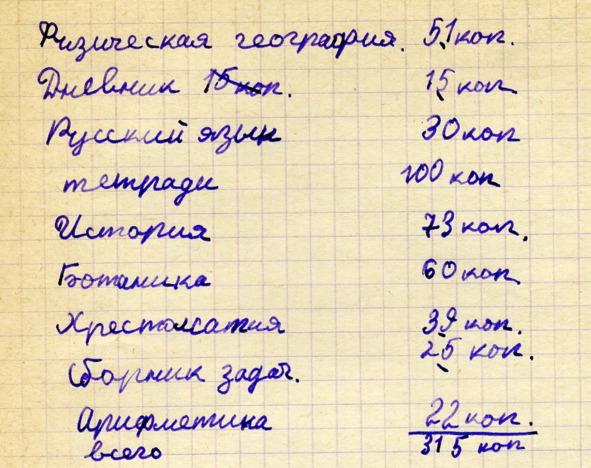 Физическая география. 51 коп.
Дневник 15 коп. 15 коп
Русский язык 30 коп
тетради 100 коп
История 73 коп.
Ботаника 60 коп.
Хрестоматия 39 коп.
Сборник задач. 25 коп.
Арифметика 22 коп.
всего 315 коп